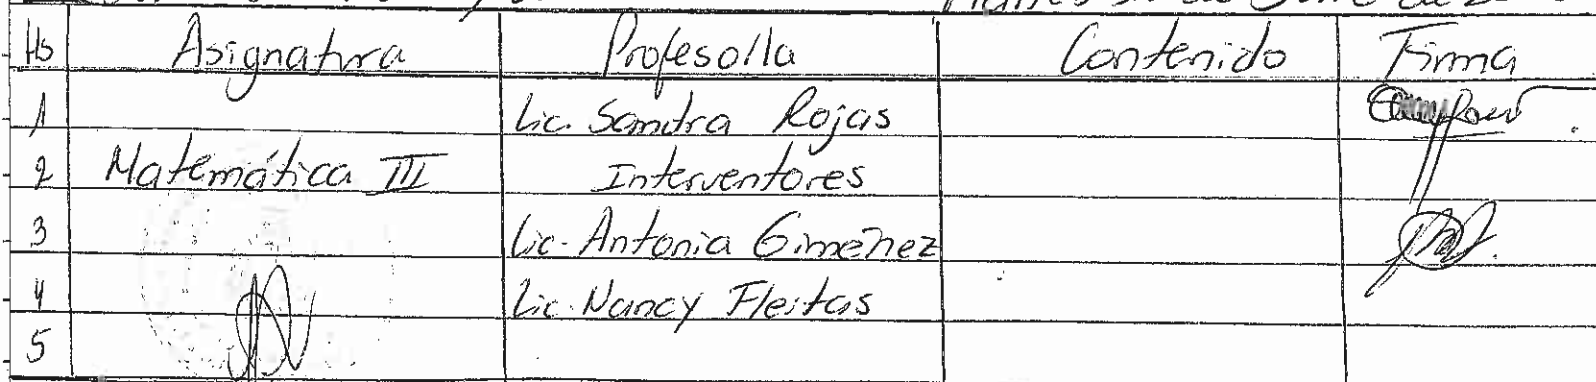 Hs Asignatura Profesor/a Contenido Firma
1 Lic. Sandra Rojas
2 Matemática III Interventores
3 Lic. Antonia Gimenez
4 Lic. Nancy Fleitas
5